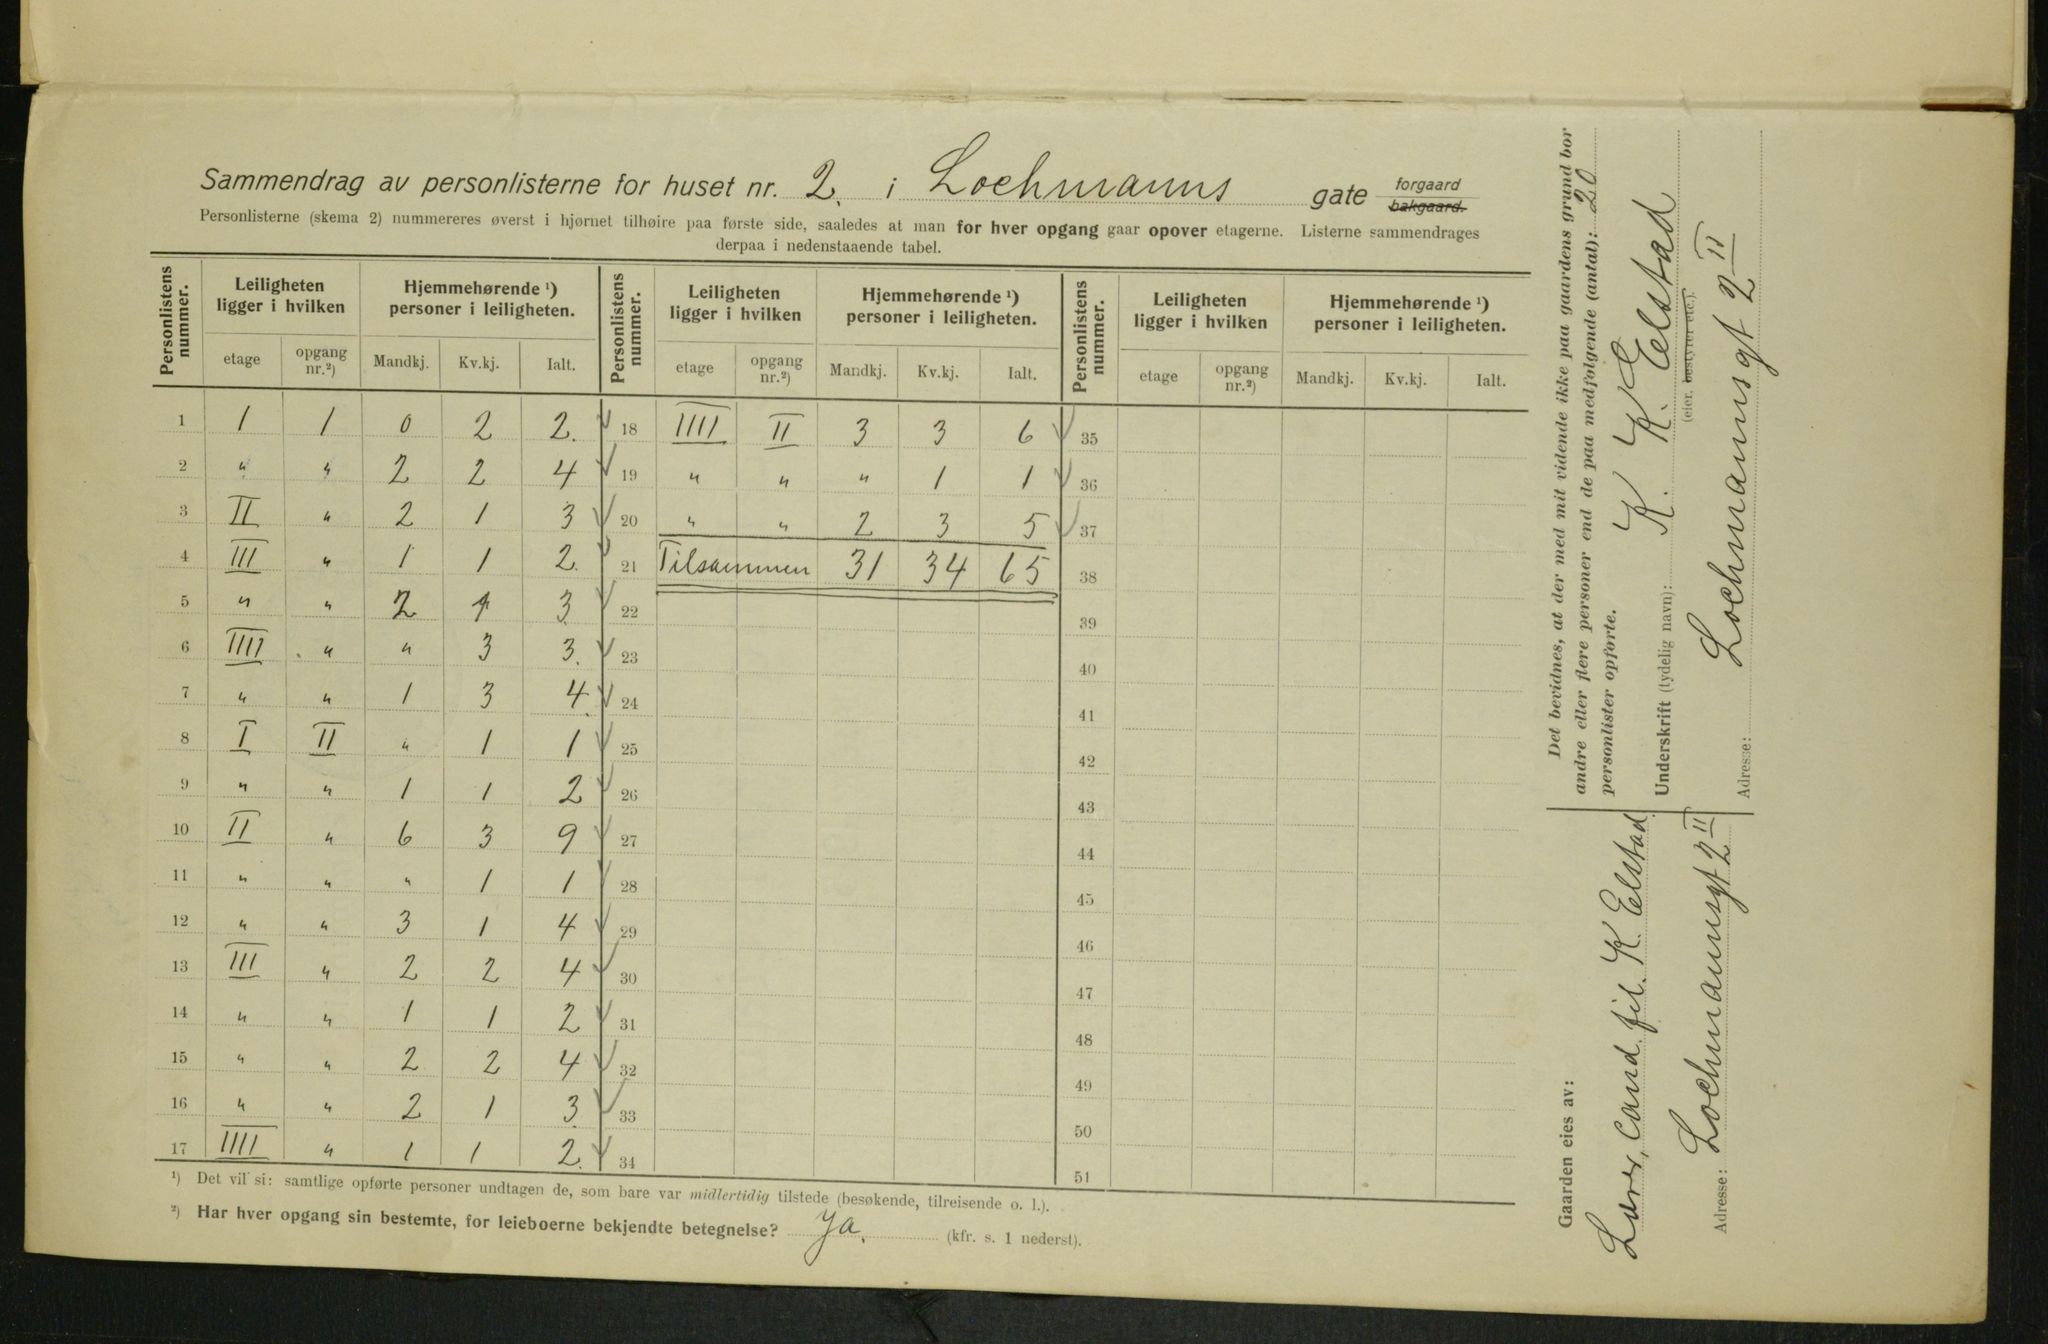 Sammendrag av personlisterne for huset nr. 2. i Lochmanns gate forgaard bakgaard.
Personlisterne (skema 2) nummereres øverst i hjørnet tilhøire paa første side, saaledes at man for hver opgang gaar opover etagerne. Listerne sammendrages
derpaa i nedenstaaende tabel.
Personlistens nummer. Leiligheten ligger i hvilken Hjemmehørende ¹) personer i leiligheten. Personlistens nummer. Leiligheten ligger i hvilken Hjemmehørende ¹) personer i leiligheten. Personlistens nummer. Leiligheten ligger i hvilken Hjemmehørende ¹) personer i leiligheten.
etage opgang nr.²) Mandkj. Kv.kj. Ialt. etage opgang nr.²) Mandkj. Kv.kj. Ialt. etage opgang nr.²) Mandkj. Kv.kj. Ialt.
1 1 1 0 2 2. 18 IIII II 3 3 6 35
2 " " 2 2 4 19 " " " 1 1 36
3 II " 2 1 3 20 " " 2 3 5 37
4 III " 1 1 2. 21 Tilsammen 31 34 65 38
5 " " 2 1 3. 22 39
6 IIII " " 3 3. 23 40
7 " " 1 3 4. 24 41
8 I II " 1 1 25 42
9 " " 1 1 2 26 43
10 II " 6 3 9 27 44
11 " " " 1 1 28 45
12 " " 3 1 4 29 46
13 III " 2 2 4 30 47
14 " " 1 1 2 31 48
15 " " 2 2 4 32 49
16 " " 2 1 3. 33 50
17 IIII " 1 1 2. 34 51
¹) Det vil si: samtlige opførte personer undtagen de, som bare var midlertidig tilstede (besøkende, tilreisende o. l.).
²) Har hver opgang sin bestemte, for leieboerne bekjendte betegnelse? Ja. (kfr. s. 1 nederst).
Det bevidnes, at der med mit vidende ikke paa gaardens grund bor
andre eller flere personer end de paa medfølgende (antal): 20
personlister opførte.
Underskrift (tydelig navn): K. K. Elstad
(eier, bestyrer etc.).
Adresse: Lochmannsgt 2 II
Gaarden eies av:
Lærer, Cand. fil. K. Elstad
Adresse: Lochmannsgt 2 II